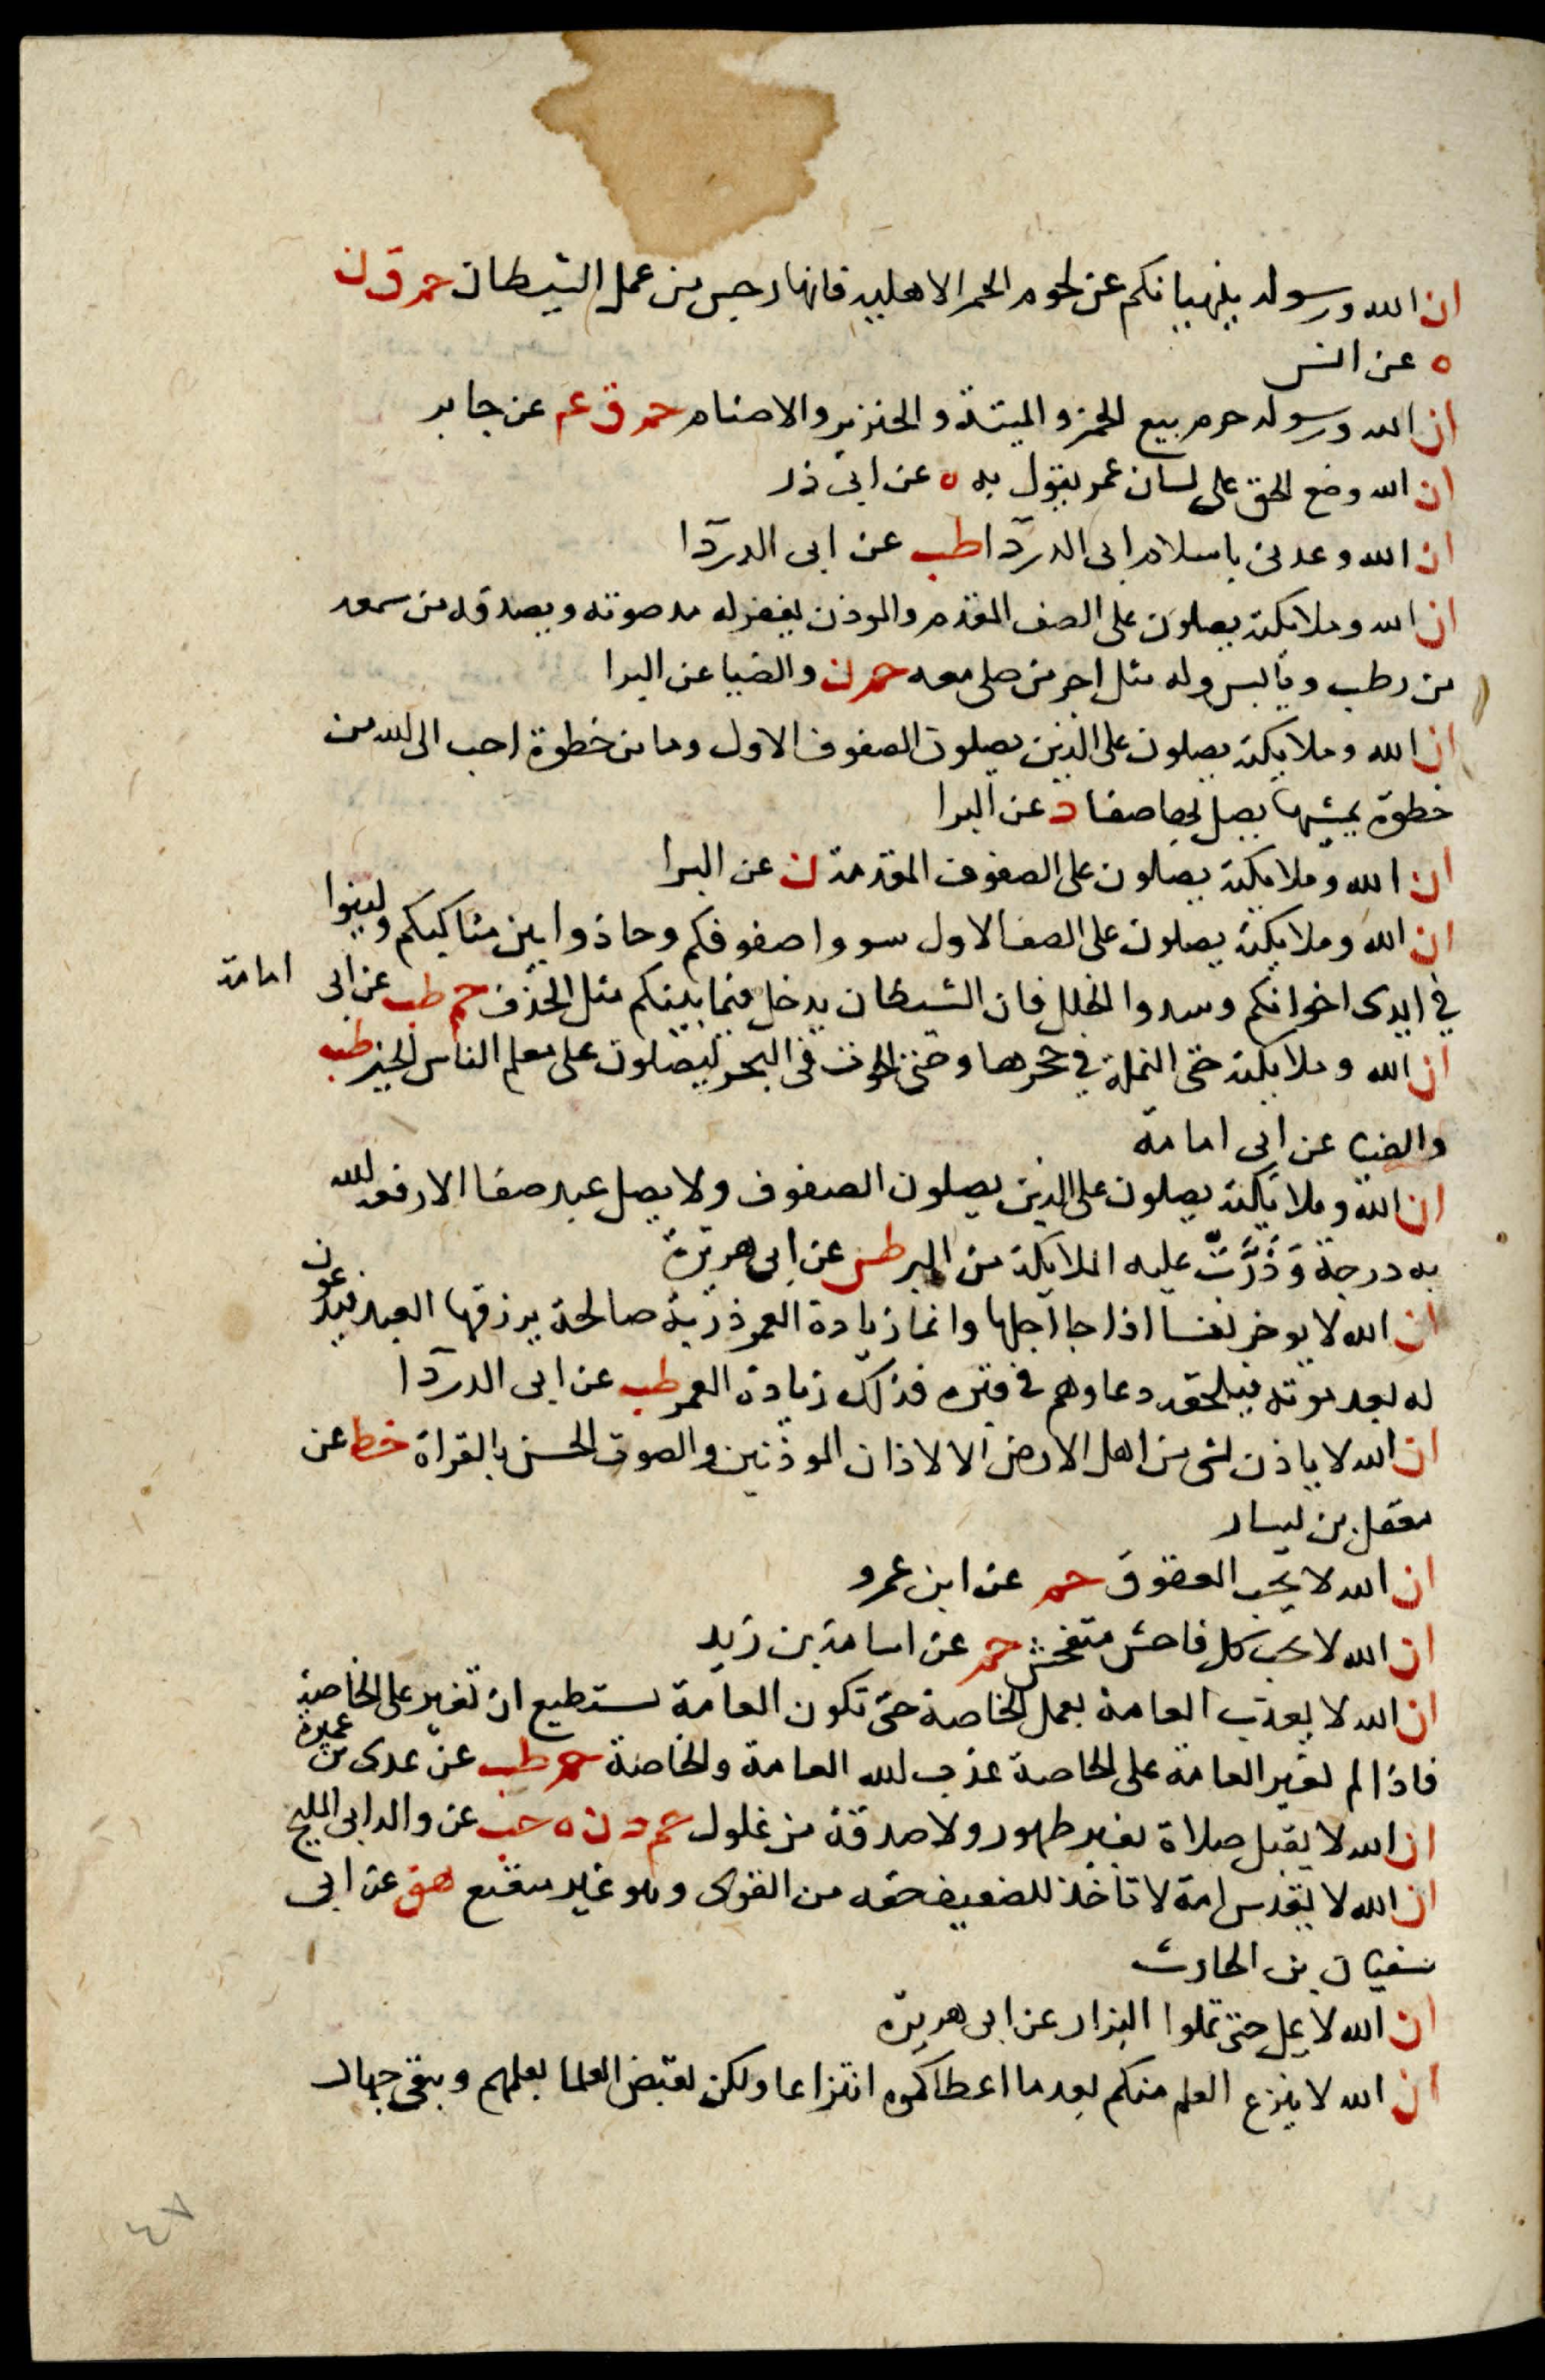 ان الله ورسوله ينهيانكم عن لحوم الحمر الاهلية فانها رجس من عمل الشيطان حم ق ن
ه عن انس
ان الله ورسوله حرم بيع الخمر والميتة والخنزير والاصنام حم ق عم عن جابر
ان الله وضع الحق على لسان عمر يقول به ه عن ابى ذر
ان الله وعدنى باسلام ابى الدردا طب عن ابى الدردا
ان الله وملايكته يصلون على الصف المقدم والموذن يغفر له مد صوته ويصدقه من سمعه
من رطب ويابس وله مثل اجر من صلى معه حم ن والضيا عن البرا
ان الله وملايكته يصلون على الذين يصلون الصفوف الاول وما من خطوة احب الى الله من
خطوة يمشيها يصل بها صفا د عن البرا
ان الله وملايكته يصلون على الصفوف المقدمة ن عن البرا
ان الله وملايكته يصلون على الصف الاول سووا صفوفكم وحاذوا بين مناكبكم ولينوا
في ايدى اخوانكم وسدوا الخلل فان الشيطان يدخل فيما بينكم مثل الحذف حم طب عن ابى امامة
ان الله وملايكته حتى النملة في جحرها وحتى الحوت في البحر ليصلون على معلم الناس الخير طب
والضيا عن ابى امامة
ان الله وملايكته يصلون على الذين يصلون الصفوف ولا يصل عبد صفا الا رفعه الله
به درجة وَذَرَّتْ عليه الملايكة من البر طس عن ابى هريرة
ان الله لا يوخر نفسا اذا جا اجلها وانما زيادة العمر ذرية صالحة يرزقها العبد فيدعون
له بعد موته فيلحقه دعاوهم في قبره فذلك زيادة العمر طب عن ابى الدردا
ان الله لا ياذن لشى من اهل الارض الا لاذان الموذنين والصوت الحسن بالقراة خط عن
معقل بن يسار
ان الله لا يحب العقوق حم عن ابن عمرو
ان الله لا يحب كل فاحش متفحش حم عن اسامة بن زيد
ان الله لا يعذب العامة بعمل الخاصة حتى تكون العامة تستطيع ان تغير على الخاصة
فاذا لم تغير العامة على الخاصة عذب الله العامة والخاصة حم طب عن عدى بن عميرة
ان الله لا يقبل صلاة بغير طهور ولا صدقة من غلول حم د ن ه حب عن والد ابى المليح
ان الله لا يقدس امة لا تاخذ للضعيف حقه من القوى وهو غير متعتع هق عن ابى
سفيان بن الحارث
ان الله لا يمل حتى تملوا البزار عن ابى هريرة
ان الله لا ينزع العلم منكم بعد ما اعطاكموه انتزاعا ولكن يقبض العلما بعلمهم ويبقى جهال
٤٧